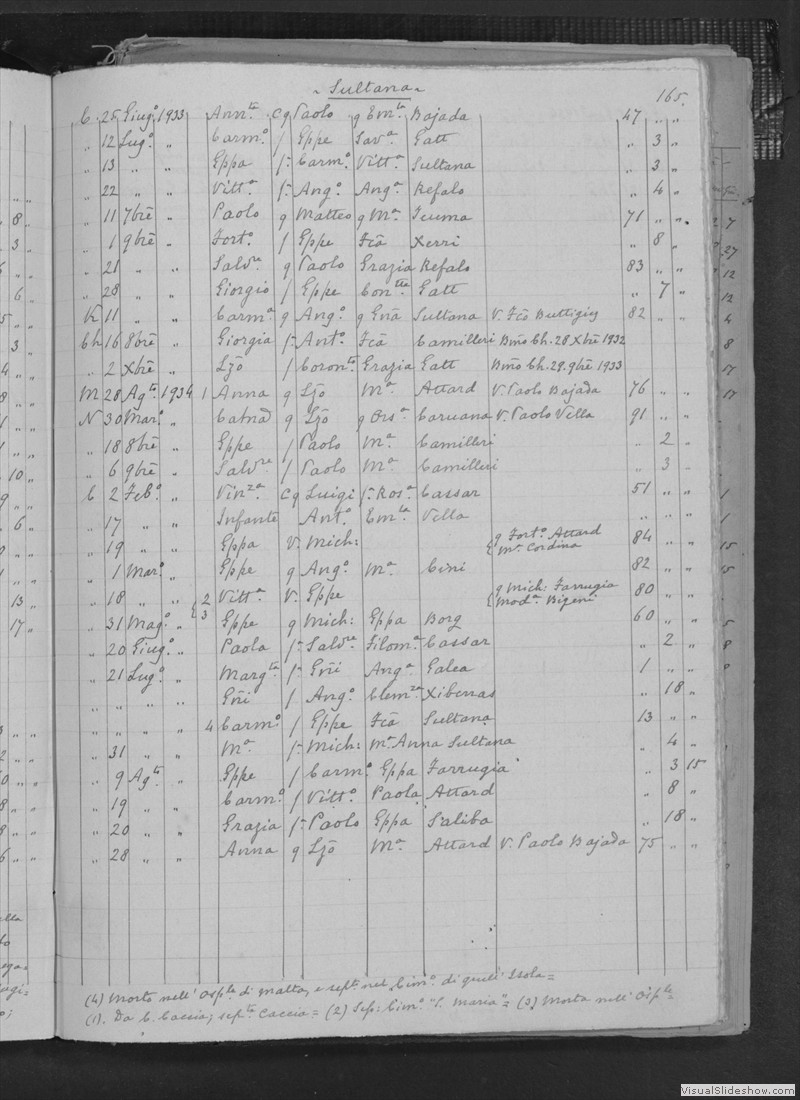 ~ Sultana ~
165.
C. 25 Giugº 1933 Annta Cg Paolo g Emta Bajada 47 „ „
„ 12 Lugº „ Carmº f Eppe Sava Gatt „ 3 „
„ 13 „ „ Eppa f- Carmº Vitta Sultana „ 3 „
„ 22 „ „ Vitta f- Angº Anga Refalo „ 4 „
„ 11 7bre „ Paolo g Matteo g Ma Zcuma 71 „ „
„ 1 9bre „ Fortº f Eppe Fca Xerri „ 8 „
„ 21 „ „ Salvre g Paolo Grazia Refalo 83 „ „
„ 28 „ „ Giorgio f Eppe Contta Gatt „ 7 „
K 11 „ „ Carma g Angº g Gna Sultana V. Fca Buttigieg 82 „ „
Ch 16 8bre „ Giorgia f- Antº Fca Camilleri Bmo Ch. 28 Xbre 1932
„ 2 Xbre „ Ljo f Coronto Grazia Gatt Bmo Ch. 29. 9bre 1933
M 28 Agto 1934 1 Anna g Ljo Ma Attard V. Paolo Bajada 76 „ „
N 30 Marº „ Catna g Ljo g Orsa Caruana V. Paolo Vella 91 „ „
„ 18 8bre „ Eppe f Paolo Ma Camilleri „ 2 „
„ 6 9bre „ Salvre f Paolo Ma Camilleri „ 3 „
C 2 Febº „ Vinza Cg Luigi f- Rosa Cassar 51 „ „
„ 17 „ „ Infante Antº Emta Vella „ „ „
„ 19 „ „ Eppa V. Mich: { g Fortº Attard Ma Cordina 84 „ „
„ 1 Marº „ Eppe g Angº Ma Cini 82 „ „
„ 18 „ „ { 2 Vitta V. Eppe { g Mich: Farrugia Moda Bigeni 80 „ „
„ 31 Magº „ 3 Eppe g Mich: Eppa Borg 60 „ „
„ 20 Giugº „ Paola f- Salvre Filoma Cassar „ 2 „
„ 21 Lugº „ Margta f- Gni Anga Galea 1 „ „
„ „ „ „ Gni f Angº Clemza Xiberras „ 18 „
„ „ „ „ 4 Carmº f Eppe Fca Sultana 13 „ „
„ 31 „ „ Ma f- Mich: Ma Anna Sultana „ 4 „
„ 9 Agto „ Eppe f Carmº Eppa Farrugia „ 3 15
„ 19 „ „ Carmº f Vittº Paola Attard „ 8 „
„ 20 „ „ Grazia f- Paolo Eppa Saliba „ 18 „
„ 28 „ „ Anna g Ljo Ma Attard V. Paolo Bajada 75 „ „
(4) Morto nell' Osple di Malta, e septo nel Cimº di quell' Isola =
(1). Da C. Caccia; septa Caccia = (2) Sep: Cimº "S. Maria" = (3) Morta nell' Osple
VisualSlideshow.com